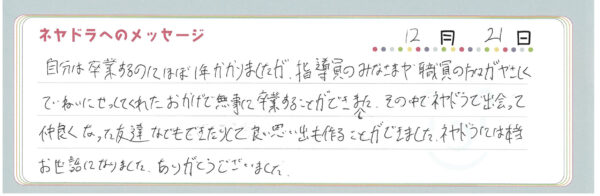 ネヤドラへのメッセージ
12月 21日
自分は卒業するのにほぼ1年かかりましたが、指導員のみなさまや職員の方々がやさしく
ていねいにせっしてくれたおかげで無事に卒業することができました。その中でネヤドラで出会って
仲良くなった友達などもできたりして良い思い出も作ることができました。ネヤドラには本当
お世話になりました。ありがとうございました。